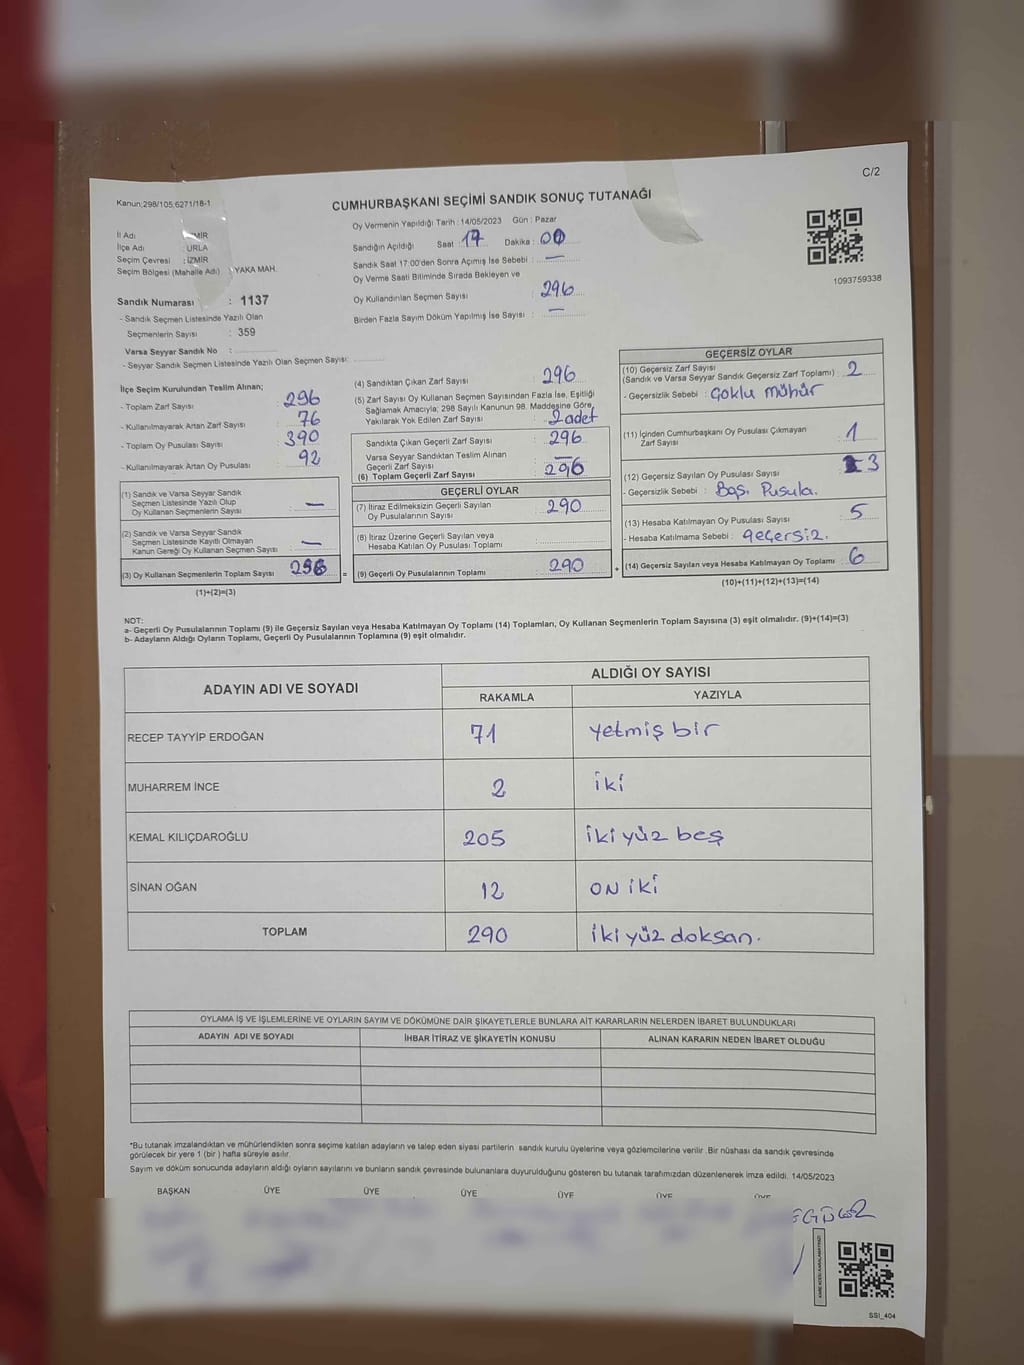 C/2
Kanun:298/105,6271/18-1
CUMHURBAŞKANI SEÇİMİ SANDIK SONUÇ TUTANAĞI
Oy Vermenin Yapıldığı Tarih : 14/05/2023 Gün : Pazar
İl Adı : MİR
İlçe Adı : URLA
Seçim Çevresi : İZMİR
Seçim Bölgesi (Mahalle Adı) : YAKA MAH.
Sandığın Açıldığı Saat : 17 Dakika : 00
Sandık Saat 17:00'den Sonra Açımış İse Sebebi : —
Oy Verme Saati Bitiminde Sırada Bekleyen ve
Oy Kullandırılan Seçmen Sayısı : 296
Birden Fazla Sayım Döküm Yapılmış İse Sayısı : —
1093759338
Sandık Numarası : 1137
- Sandık Seçmen Listesinde Yazılı Olan
Seçmenlerin Sayısı : 359
Varsa Seyyar Sandık No :
- Seyyar Sandık Seçmen Listesinde Yazılı Olan Seçmen Sayısı:
İlçe Seçim Kurulundan Teslim Alınan;
- Toplam Zarf Sayısı : 296
- Kullanılmayarak Artan Zarf Sayısı : 76
- Toplam Oy Pusulası Sayısı : 390
- Kullanılmayarak Artan Oy Pusulası : 92
(1) Sandık ve Varsa Seyyar Sandık
Seçmen Listesinde Yazılı Olup
Oy Kullanan Seçmenlerin Sayısı : —
(2) Sandık ve Varsa Seyyar Sandık
Seçmen Listesinde Kayıtlı Olmayan
Kanun Gereği Oy Kullanan Seçmen Sayısı : —
(3) Oy Kullanan Seçmenlerin Toplam Sayısı : 296 =
(1)+(2)=(3)
(4) Sandıktan Çıkan Zarf Sayısı : 296
(5) Zarf Sayısı Oy Kullanan Seçmen Sayısından Fazla İse, Eşitliği
Sağlamak Amacıyla; 298 Sayılı Kanunun 98. Maddesine Göre,
Yakılarak Yok Edilen Zarf Sayısı : 2 adet
Sandıkta Çıkan Geçerli Zarf Sayısı : 296
Varsa Seyyar Sandıktan Teslim Alınan
Geçerli Zarf Sayısı : —
(6) Toplam Geçerli Zarf Sayısı : 296
GEÇERLİ OYLAR
(7) İtiraz Edilmeksizin Geçerli Sayılan
Oy Pusulalarının Sayısı : 290
(8) İtiraz Üzerine Geçerli Sayılan veya
Hesaba Katılan Oy Pusulası Toplamı :
(9) Geçerli Oy Pusulalarının Toplamı : 290 +
GEÇERSİZ OYLAR
(10) Geçersiz Zarf Sayısı
(Sandık ve Varsa Seyyar Sandık Geçersiz Zarf Toplamı) : 2
- Geçersizlik Sebebi : Çoklu mühür
(11) İçinden Cumhurbaşkanı Oy Pusulası Çıkmayan
Zarf Sayısı : 1
(12) Geçersiz Sayılan Oy Pusulası Sayısı : 3
- Geçersizlik Sebebi : Boş. Pusula.
(13) Hesaba Katılmayan Oy Pusulası Sayısı : 5
- Hesaba Katılmama Sebebi : geçersiz.
(14) Geçersiz Sayılan veya Hesaba Katılmayan Oy Toplamı : 6
(10)+(11)+(12)+(13)=(14)
NOT:
a- Geçerli Oy Pusulalarının Toplamı (9) ile Geçersiz Sayılan veya Hesaba Katılmayan Oy Toplamı (14) Toplamları, Oy Kullanan Seçmenlerin Toplam Sayısına (3) eşit olmalıdır. (9)+(14)=(3)
b- Adayların Aldığı Oyların Toplamı, Geçerli Oy Pusulalarının Toplamına (9) eşit olmalıdır.
ADAYIN ADI VE SOYADI
ALDIĞI OY SAYISI
RAKAMLA YAZIYLA
RECEP TAYYİP ERDOĞAN 71 yetmiş bir
MUHARREM İNCE 2 iki
KEMAL KILIÇDAROĞLU 205 iki yüz beş
SİNAN OĞAN 12 on iki
TOPLAM 290 iki yüz doksan.
OYLAMA İŞ VE İŞLEMLERİNE VE OYLARIN SAYIM VE DÖKÜMÜNE DAİR ŞİKAYETLERLE BUNLARA AİT KARARLARIN NELERDEN İBARET BULUNDUKLARI
ADAYIN ADI VE SOYADI İHBAR İTİRAZ VE ŞİKAYETİN KONUSU ALINAN KARARIN NEDEN İBARET OLDUĞU
*Bu tutanak imzalandıktan ve mühürlendikten sonra seçime katılan adayların ve talep eden siyasi partilerin sandık kurulu üyelerine veya gözlemcilerine verilir. Bir nüshası da sandık çevresinde
görülecek bir yere 1 (bir) hafta süreyle asılır.
Sayım ve döküm sonucunda adayların aldığı oyların sayılarını ve bunların sandık çevresinde bulunanlara duyurulduğunu gösteren bu tutanak tarafımızdan düzenlenerek imza edildi. 14/05/2023
BAŞKAN ÜYE ÜYE ÜYE ÜYE ÜYE ÜYE
SSİ_404